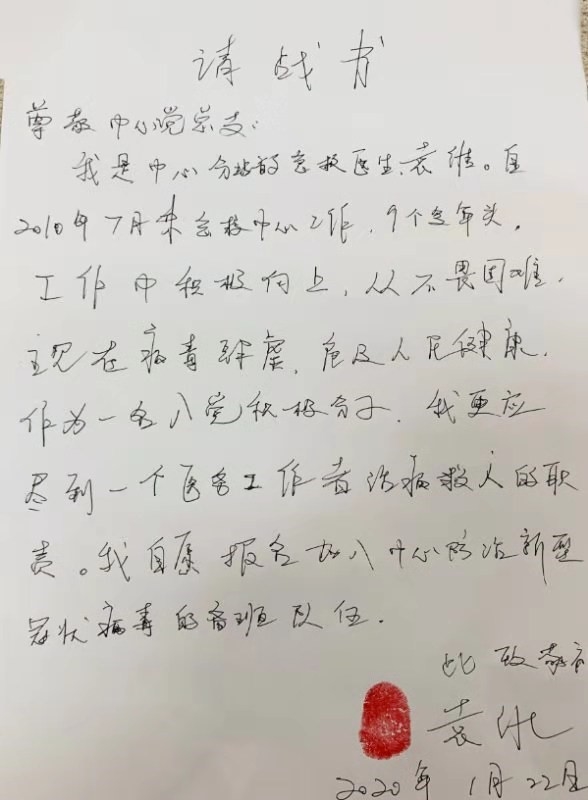 请战书
尊敬中心党总支:
我是中心分站的急救医生袁维。自
2010年7月来急救中心工作,9个多年头。
工作中积极向上,从不畏困难,
现在病毒肆虐,危及人民健康,
作为一名入党积极分子,我更应
尽到一个医务工作者治病救人的职
责。我自愿报名加入中心防治新型
冠状病毒的备班队伍.
此致敬礼
袁
2020年1月22日